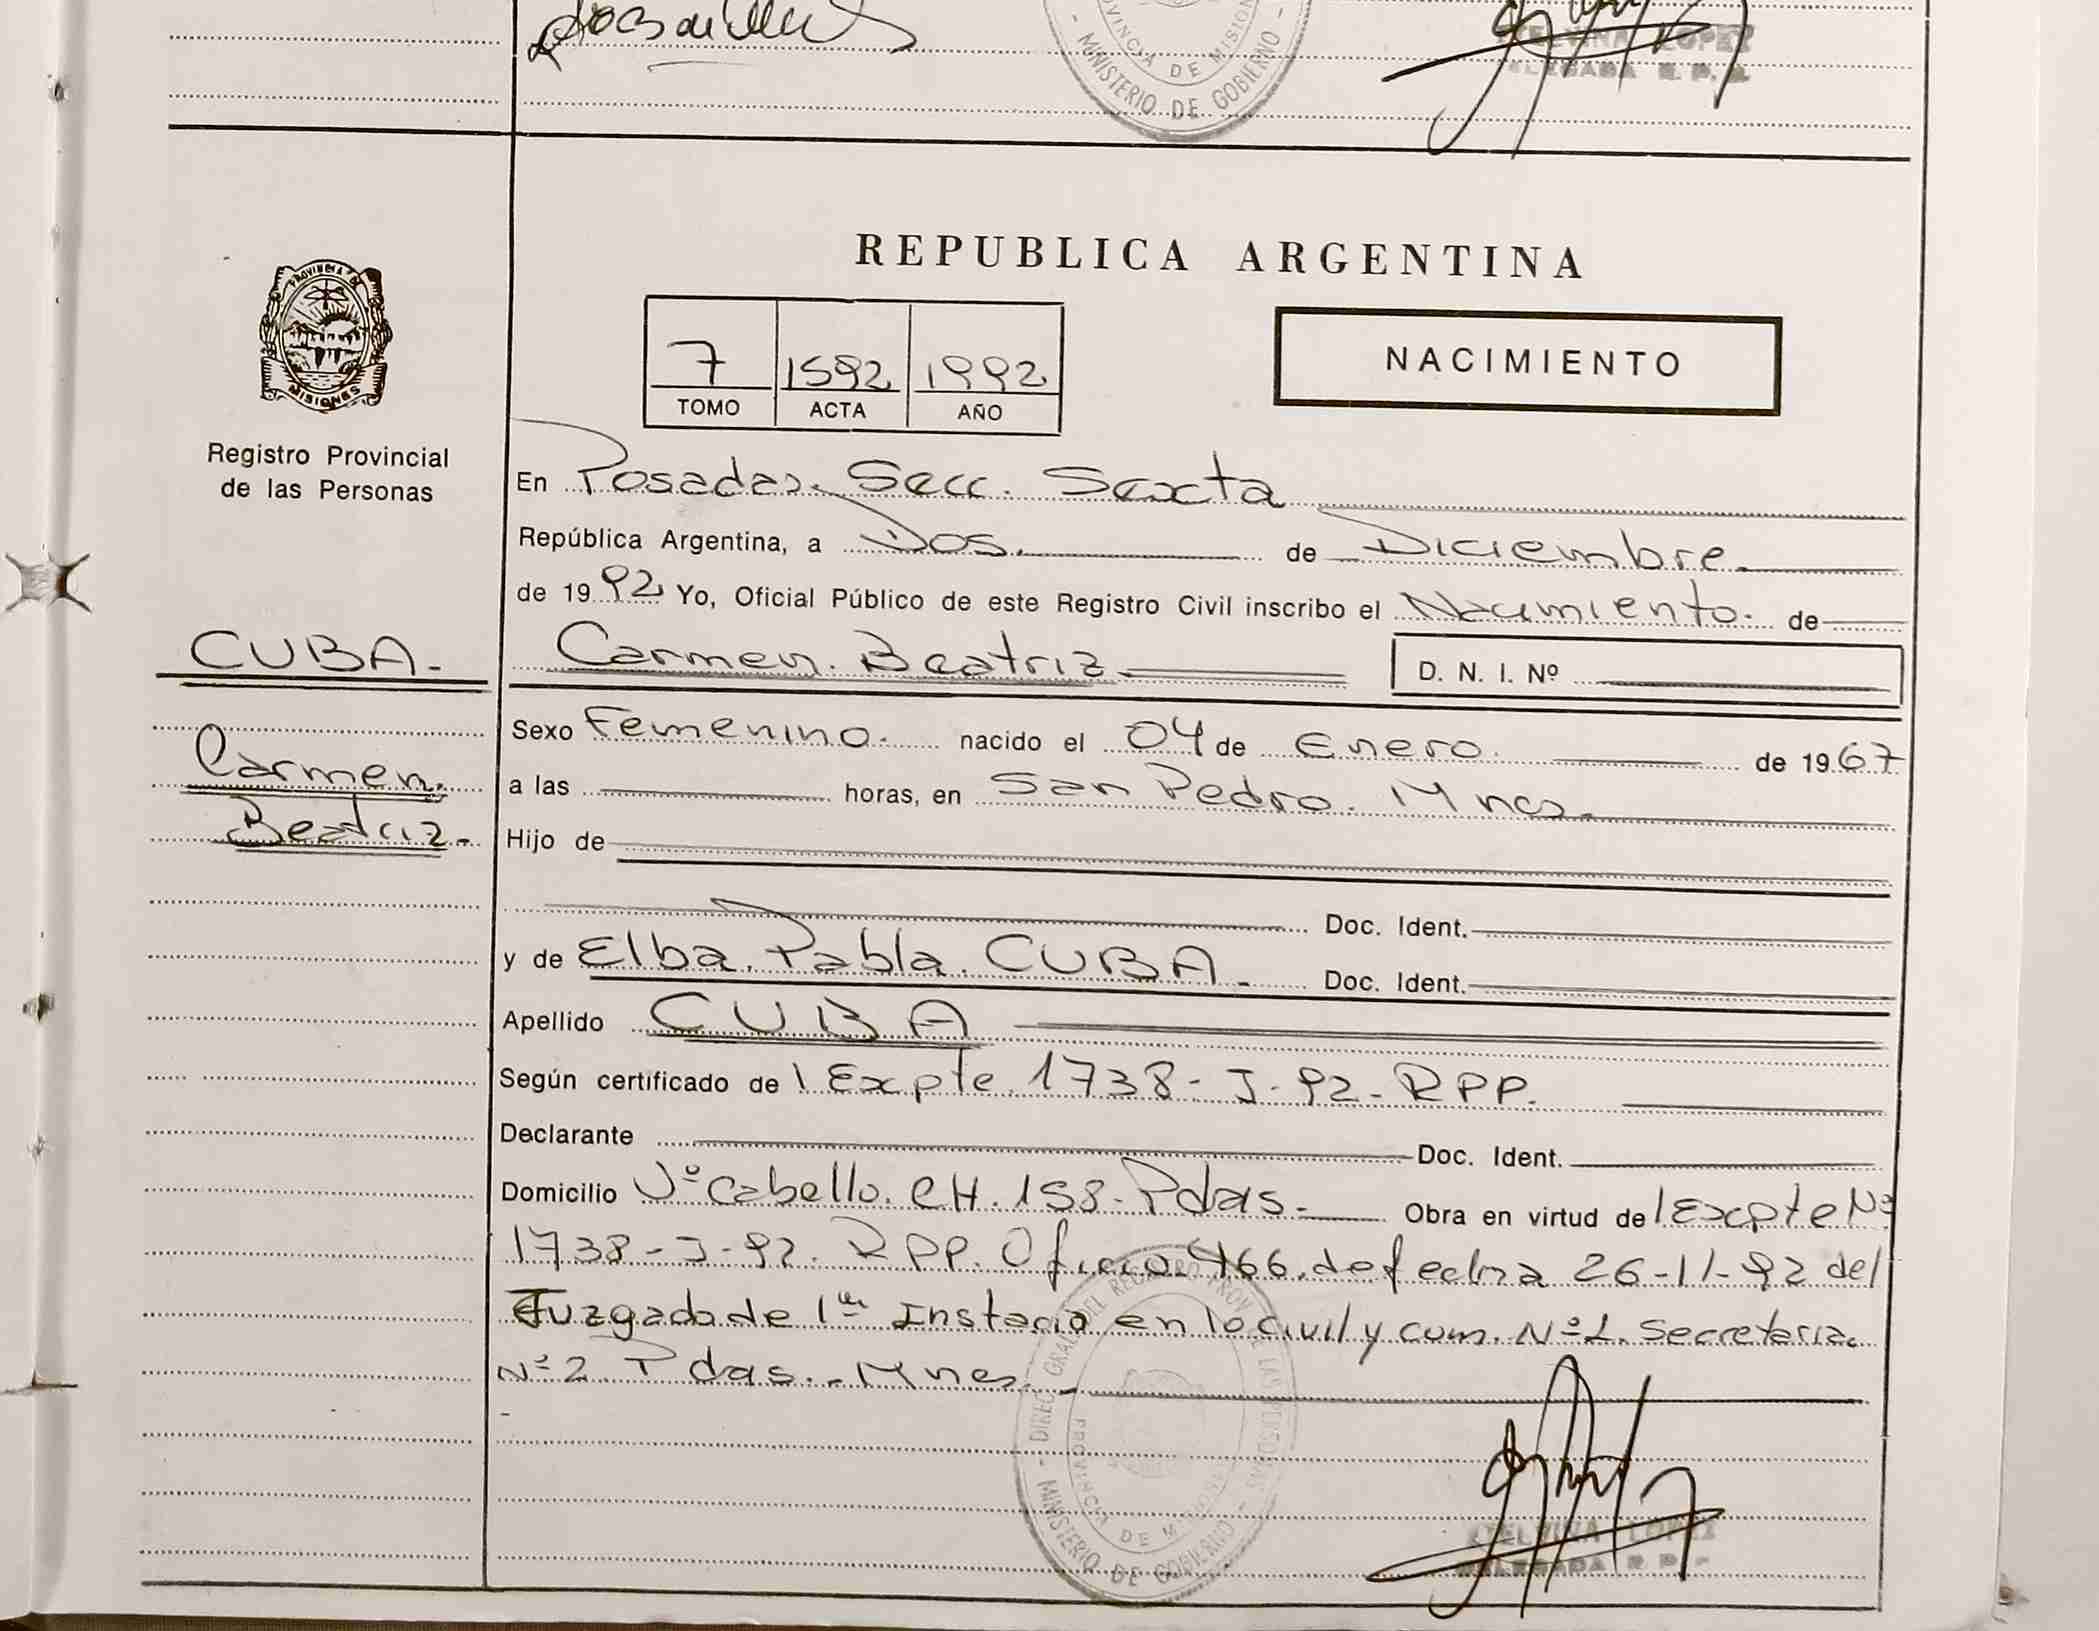 MINISTERIO DE GOBIERNO
PROVINCIA DE MISION
LOPEZ
REPUBLICA ARGENTINA
PROVINCIA DE
MISIONES
Registro Provincial
de las Personas
7 1592 1992
TOMO ACTA AÑO
NACIMIENTO
En Posadas. Secc. Sexta
República Argentina, a Dos. de Diciembre.
de 1992 Yo, Oficial Público de este Registro Civil inscribo el Nacimiento. de
CUBA.
Carmen. Beatriz D. N. I. Nº
Carmen.
Beatriz.
Sexo Femenino. nacido el 04 de Enero. de 1967
a las horas, en San Pedro. Mnes.
Hijo de
Doc. Ident.
y de Elba. Pabla. CUBA. Doc. Ident.
Apellido CUBA
Según certificado de Expte. 1738-J-92-RPP.
Declarante Doc. Ident.
Domicilio Vº Cabello. CH. 158-Pdas. Obra en virtud de Expte Nº
1738-J-92. RPP. Oficio 466. de fecha 26-11-92 del
Juzgado de 1ra Instacia en lo Civil y com. Nº 2. Secretaria
Nº 2 Pdas. - Mnes.
DIREC. GRAL DEL REGISTRO PROV. DE LAS PERSONAS
PROVINCIA DE MISIONES
MINISTERIO DE GOBIERNO
ELVINA LOPEZ
DELEGADA R. P.